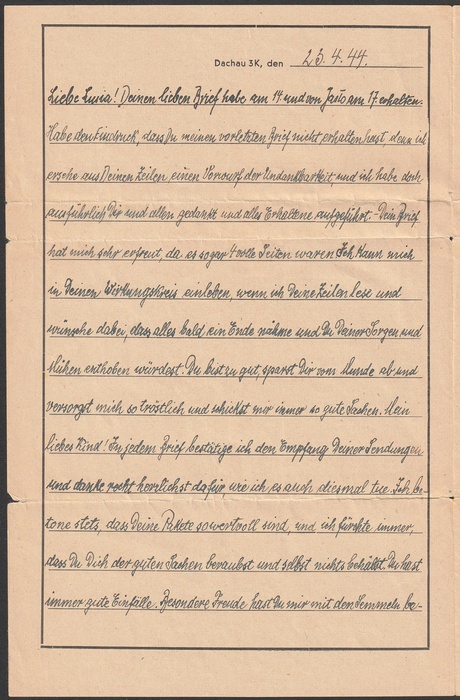 Dachau 3K, den 25.4.44.
Liebe Luisa! Deinen lieben Brief habe am 14 und von am 17. erhalten.
Habe den Eindruck, dass Du meinen vorletzten Brief nicht erhalten hast, denn ich
ersehe aus Deinen Zeilen, einen Vorwurf der Undankbarkeit, und ich habe doch
ausführlich Dir und allen gedankt und alles Erhaltene aufgeführt. - Dein Brief
hat mich sehr erfreut, da es sogar 4 volle Seiten waren. Ich kann mich
in Deinen Wirkungskreis einleben, wenn ich Deine Zeilen lese und
wünsche dabei, dass alles bald ein Ende nähme und Du Deiner Sorgen und
Mühen enthoben würdest. Du bist zu gut, sparst Dir vom Munde ab und
versorgst mich so tröstlich und schickst mir immer so gute Sachen. Mein
liebes Kind! In jedem Brief bestätige ich den Empfang Deiner Sendungen
und danke recht herzlichst dafür, wie ich es auch diesmal tue. Ich be-
tone stets, dass Deine Pakete so wertvoll sind, und ich fürchte immer,
dass Du Dich der guten Sachen beraubst und selbst nichts behältst. Du hast
immer gute Einfälle. Besondere Freude hast Du mir mit den Semmeln be-